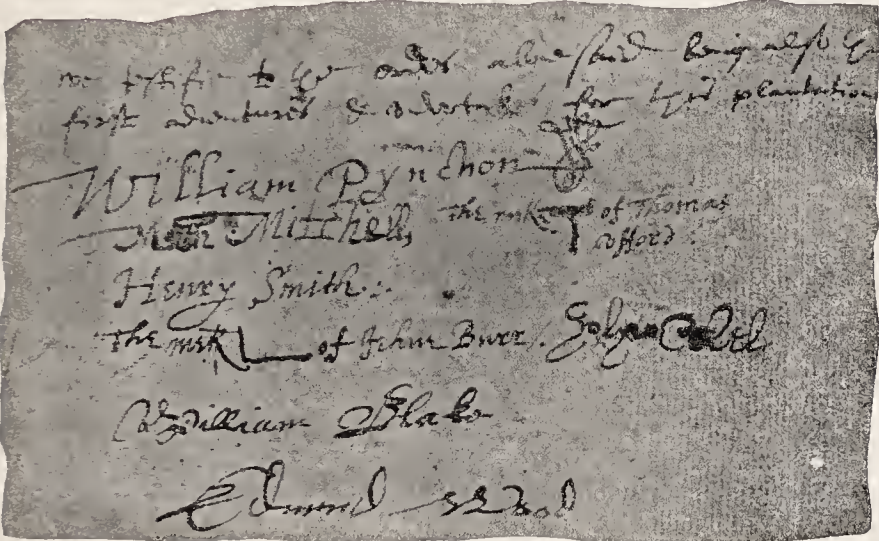 we testifie to ye order abovesaid being
first adventurers & undertakers for this plantation
William Pynchon
Mitchell, The mrk of Thomas
ufford
Henry Smith
The mrk of Jehue Burr. Cabel
William Blake
Edmund Wood